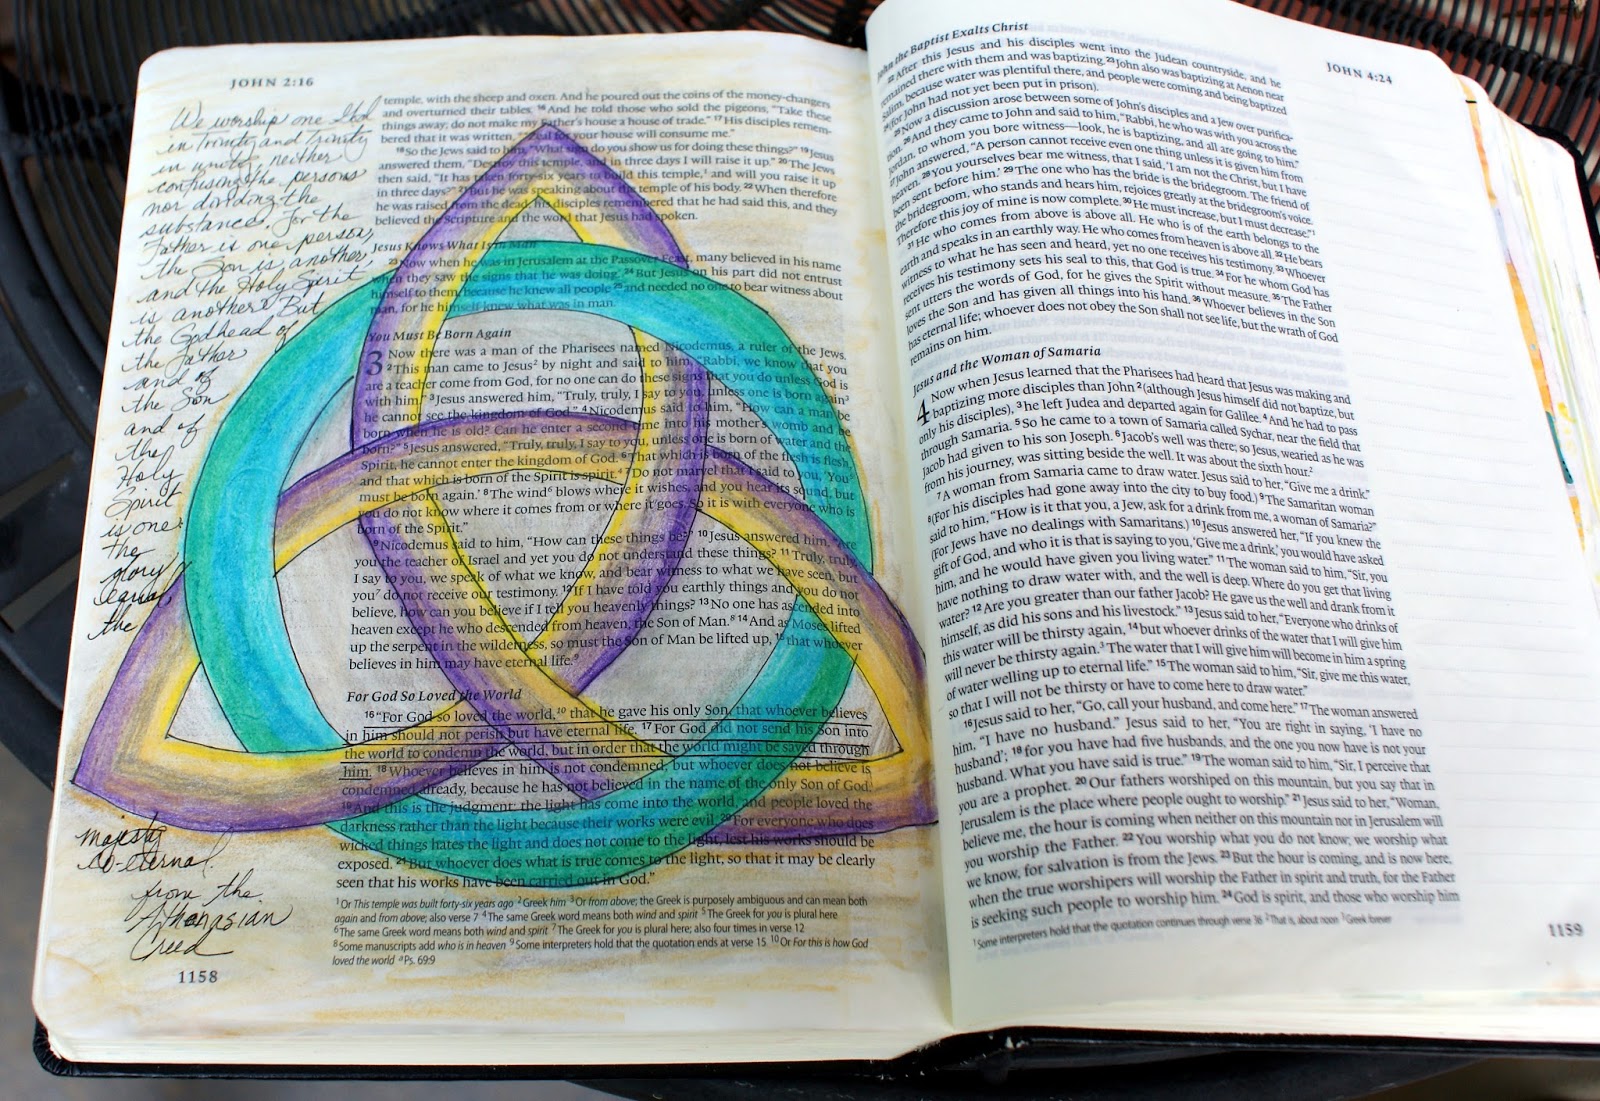 JOHN 2:16
We worship one God
in Trinity and Trinity
in unity, neither
confusing the persons
nor dividing the
substance. For the
Father is one person,
the Son is another,
and the Holy Spirit
is another. But
the Godhead of
the Father
and of
the Son
and of
the
Holy
Spirit
is one:
the
glory
equal
the
majesty
co-eternal.
from the
Athanasian
Creed
1158
temple, with the sheep and oxen. And he poured out the coins of the money-changers
and overturned their tables. 16 And he told those who sold the pigeons, “Take these
things away; do not make my Father’s house a house of trade.” 17 His disciples remem-
bered that it was written, “Zeal for your house will consume me.”
18 So the Jews said to him, “What sign do you show us for doing these things?” 19 Jesus
answered them, “Destroy this temple, and in three days I will raise it up.” 20 The Jews
then said, “It has taken forty-six years to build this temple,1 and will you raise it up
in three days?” 21 But he was speaking about the temple of his body. 22 When therefore
he was raised from the dead, his disciples remembered that he had said this, and they
believed the Scripture and the word that Jesus had spoken.
Jesus Knows What Is in Man
23 Now when he was in Jerusalem at the Passover Feast, many believed in his name
when they saw the signs that he was doing. 24 But Jesus on his part did not entrust
himself to them, because he knew all people 25 and needed no one to bear witness about
man, for he himself knew what was in man.
You Must Be Born Again
3 Now there was a man of the Pharisees named Nicodemus, a ruler of the Jews.
2 This man came to Jesus2 by night and said to him, “Rabbi, we know that you
are a teacher come from God, for no one can do these signs that you do unless God is
with him.” 3 Jesus answered him, “Truly, truly, I say to you, unless one is born again3
he cannot see the kingdom of God.” 4 Nicodemus said to him, “How can a man be
born when he is old? Can he enter a second time into his mother’s womb and be
born?” 5 Jesus answered, “Truly, truly, I say to you, unless one is born of water and the
Spirit, he cannot enter the kingdom of God. 6 That which is born of the flesh is flesh,
and that which is born of the Spirit is spirit.4 7 Do not marvel that I said to you, ‘You5
must be born again.’ 8 The wind6 blows where it wishes, and you hear its sound, but
you do not know where it comes from or where it goes. So it is with everyone who is
born of the Spirit.”
9 Nicodemus said to him, “How can these things be?” 10 Jesus answered him, “Are
you the teacher of Israel and yet you do not understand these things? 11 Truly, truly,
I say to you, we speak of what we know, and bear witness to what we have seen, but
you7 do not receive our testimony. 12 If I have told you earthly things and you do not
believe, how can you believe if I tell you heavenly things? 13 No one has ascended into
heaven except he who descended from heaven, the Son of Man.8 14 And as Moses lifted
up the serpent in the wilderness, so must the Son of Man be lifted up, 15 that whoever
believes in him may have eternal life.9
For God So Loved the World
16 “For God so loved the world,10 that he gave his only Son, that whoever believes
in him should not perish but have eternal life. 17 For God did not send his Son into
the world to condemn the world, but in order that the world might be saved through
him. 18 Whoever believes in him is not condemned, but whoever does not believe is
condemned already, because he has not believed in the name of the only Son of God.
19 And this is the judgment: the light has come into the world, and people loved the
darkness rather than the light because their works were evil. 20 For everyone who does
wicked things hates the light and does not come to the light, lest his works should be
exposed. 21 But whoever does what is true comes to the light, so that it may be clearly
seen that his works have been carried out in God.”
1 Or This temple was built forty-six years ago 2 Greek him 3 Or from above; the Greek is purposely ambiguous and can mean both
again and from above; also verse 7 4 The same Greek word means both wind and spirit 5 The Greek for you is plural here
6 The same Greek word means both wind and spirit 7 The Greek for you is plural here; also four times in verse 12
8 Some manuscripts add who is in heaven 9 Some interpreters hold that the quotation ends at verse 15 10 Or For this is how God
loved the world a Ps. 69:9
JOHN 4:24
John the Baptist Exalts Christ
22 After this Jesus and his disciples went into the Judean countryside, and he
remained there with them and was baptizing. 23 John also was baptizing at Aenon near
Salim, because water was plentiful there, and people were coming and being baptized
24 (for John had not yet been put in prison).
25 Now a discussion arose between some of John’s disciples and a Jew over purifica-
tion. 26 And they came to John and said to him, “Rabbi, he who was with you across the
Jordan, to whom you bore witness—look, he is baptizing, and all are going to him.”
27 John answered, “A person cannot receive even one thing unless it is given him from
heaven. 28 You yourselves bear me witness, that I said, ‘I am not the Christ, but I have
been sent before him.’ 29 The one who has the bride is the bridegroom. The friend of
the bridegroom, who stands and hears him, rejoices greatly at the bridegroom’s voice.
Therefore this joy of mine is now complete. 30 He must increase, but I must decrease.”1
31 He who comes from above is above all. He who is of the earth belongs to the
earth and speaks in an earthly way. He who comes from heaven is above all. 32 He bears
witness to what he has seen and heard, yet no one receives his testimony. 33 Whoever
receives his testimony sets his seal to this, that God is true. 34 For he whom God has
sent utters the words of God, for he gives the Spirit without measure. 35 The Father
loves the Son and has given all things into his hand. 36 Whoever believes in the Son
has eternal life; whoever does not obey the Son shall not see life, but the wrath of God
remains on him.
Jesus and the Woman of Samaria
4 Now when Jesus learned that the Pharisees had heard that Jesus was making and
baptizing more disciples than John 2 (although Jesus himself did not baptize, but
only his disciples), 3 he left Judea and departed again for Galilee. 4 And he had to pass
through Samaria. 5 So he came to a town of Samaria called Sychar, near the field that
Jacob had given to his son Joseph. 6 Jacob’s well was there; so Jesus, wearied as he was
from his journey, was sitting beside the well. It was about the sixth hour.2
7 A woman from Samaria came to draw water. Jesus said to her, “Give me a drink.”
8 (For his disciples had gone away into the city to buy food.) 9 The Samaritan woman
said to him, “How is it that you, a Jew, ask for a drink from me, a woman of Samaria?”
(For Jews have no dealings with Samaritans.) 10 Jesus answered her, “If you knew the
gift of God, and who it is that is saying to you, ‘Give me a drink,’ you would have asked
him, and he would have given you living water.” 11 The woman said to him, “Sir, you
have nothing to draw water with, and the well is deep. Where do you get that living
water? 12 Are you greater than our father Jacob? He gave us the well and drank from it
himself, as did his sons and his livestock.” 13 Jesus said to her, “Everyone who drinks of
this water will be thirsty again, 14 but whoever drinks of the water that I will give him
will never be thirsty again.3 The water that I will give him will become in him a spring
of water welling up to eternal life.” 15 The woman said to him, “Sir, give me this water,
so that I will not be thirsty or have to come here to draw water.”
16 Jesus said to her, “Go, call your husband, and come here.” 17 The woman answered
him, “I have no husband.” Jesus said to her, “You are right in saying, ‘I have no
husband’; 18 for you have had five husbands, and the one you now have is not your
husband. What you have said is true.” 19 The woman said to him, “Sir, I perceive that
you are a prophet. 20 Our fathers worshiped on this mountain, but you say that in
Jerusalem is the place where people ought to worship.” 21 Jesus said to her, “Woman,
believe me, the hour is coming when neither on this mountain nor in Jerusalem will
you worship the Father. 22 You worship what you do not know; we worship what
we know, for salvation is from the Jews. 23 But the hour is coming, and is now here,
when the true worshipers will worship the Father in spirit and truth, for the Father
is seeking such people to worship him. 24 God is spirit, and those who worship him
1 Some interpreters hold that the quotation continues through verse 36 2 That is, about noon 3 Greek forever
1159